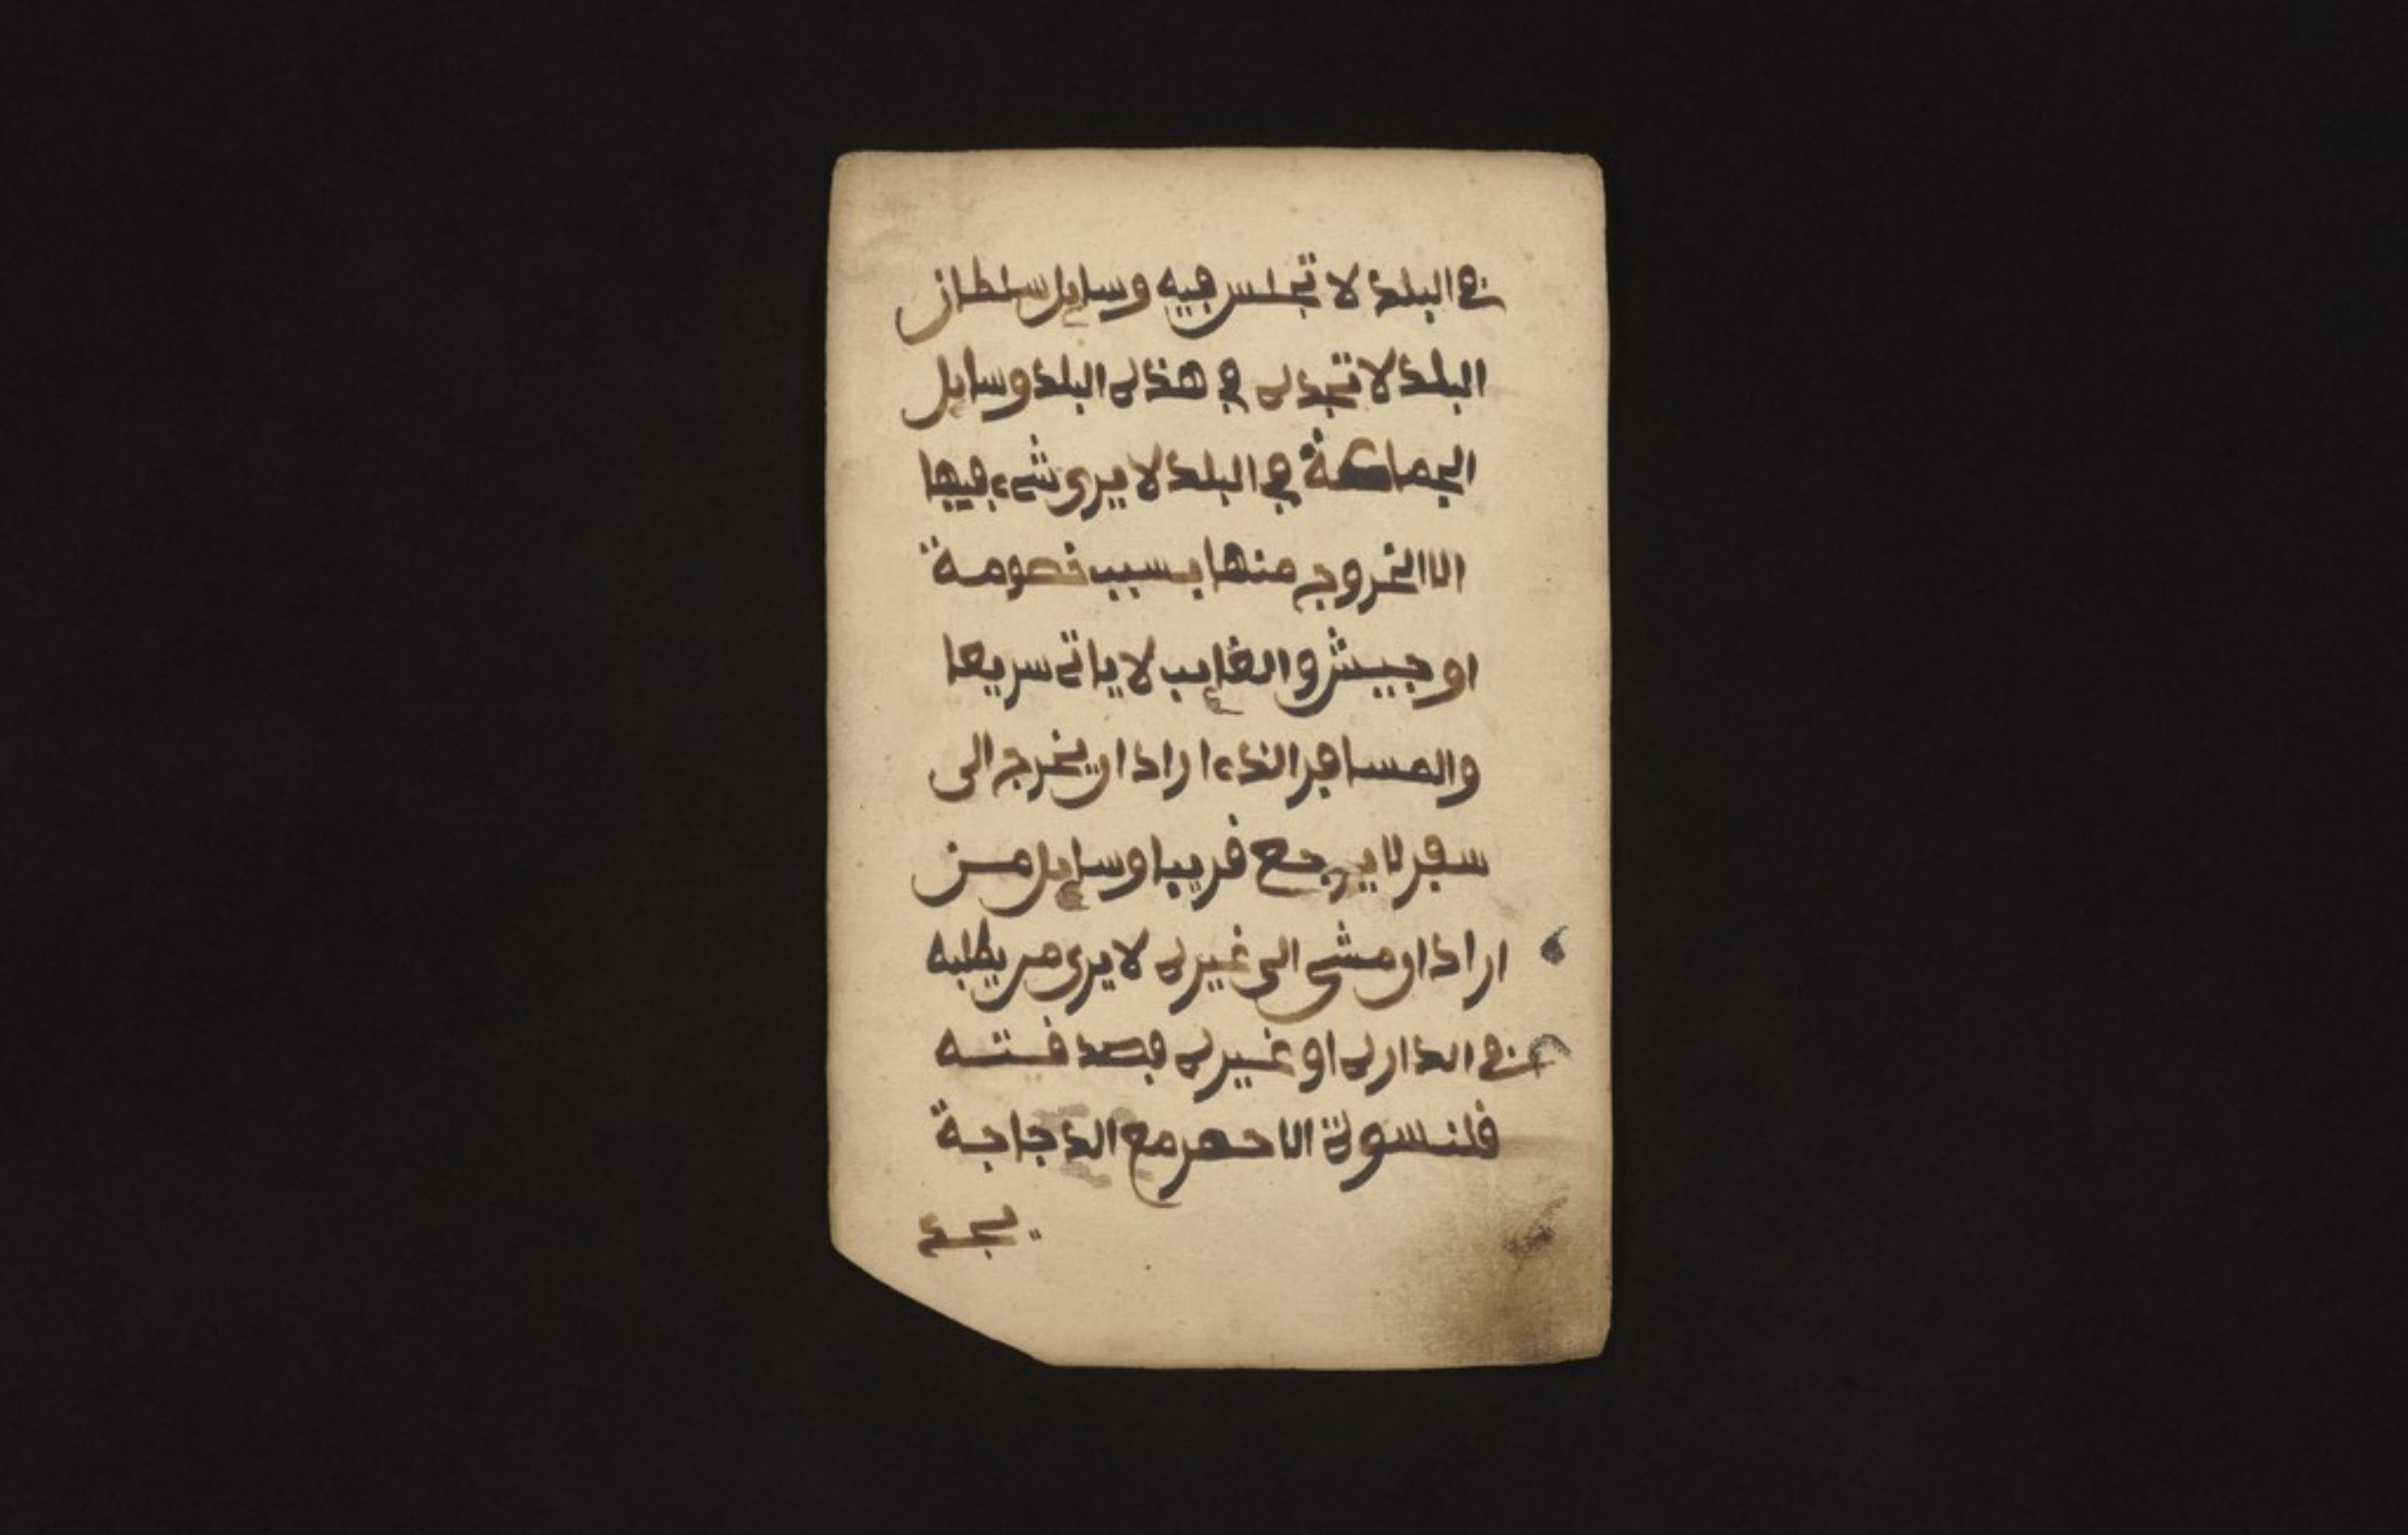 في البلد لا تجلس فيه وسايل سلطان
البلد لا تجده في هذه البلد وسايل
الجماعة في البلد لا يرى شيء فيها
الا الخروج منها بسبب خصومة
او جيش والغايب لا ياتي سريعا
والمسافر الذي اراد ان يخرج الى
سفر لا يرجع قريبا وسايل من
اراد ان مشى الى غيره لا يرى من يطلبه
في الداره او غيره فصدقته
قلنسوة الاحمر مع الدجاجة